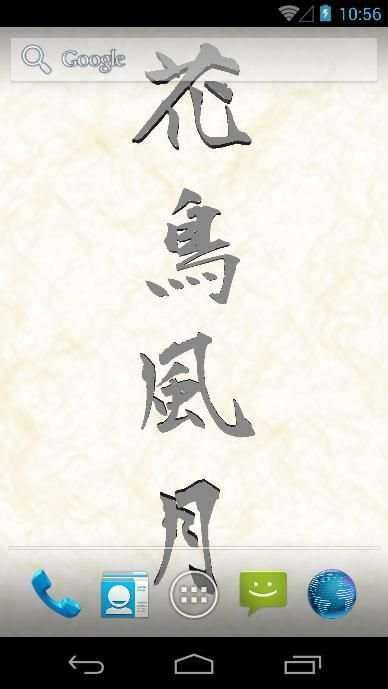 10:56
Google
花
鳥
風
月